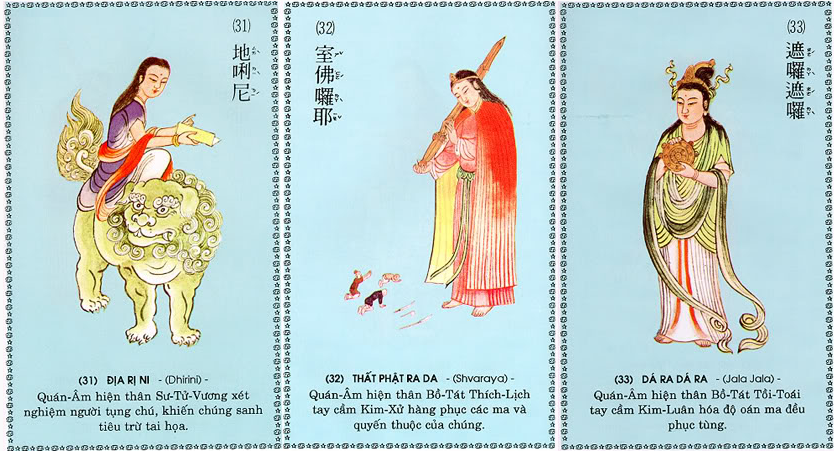 (31)
地唎尼
(31) ĐỊA RỊ NI - (Dhirini) -
Quán-Âm hiện thân Sư-Tử-Vương xét
nghiệm người tụng chú, khiến chúng sanh
tiêu trừ tai họa.
(32)
室佛囉耶
(32) THẤT PHẬT RA DA - (Shvaraya) -
Quán-Âm hiện thân Bồ-Tát Thích-Lịch
tay cầm Kim-Xử hàng phục các ma và
quyến thuộc của chúng.
(33)
遮囉遮囉
(33) DÁ RA DÁ RA - (Jala Jala) -
Quán-Âm hiện thân Bồ-Tát Tồi-Toái
tay cầm Kim-Luân hóa độ oán ma đều
phục tùng.